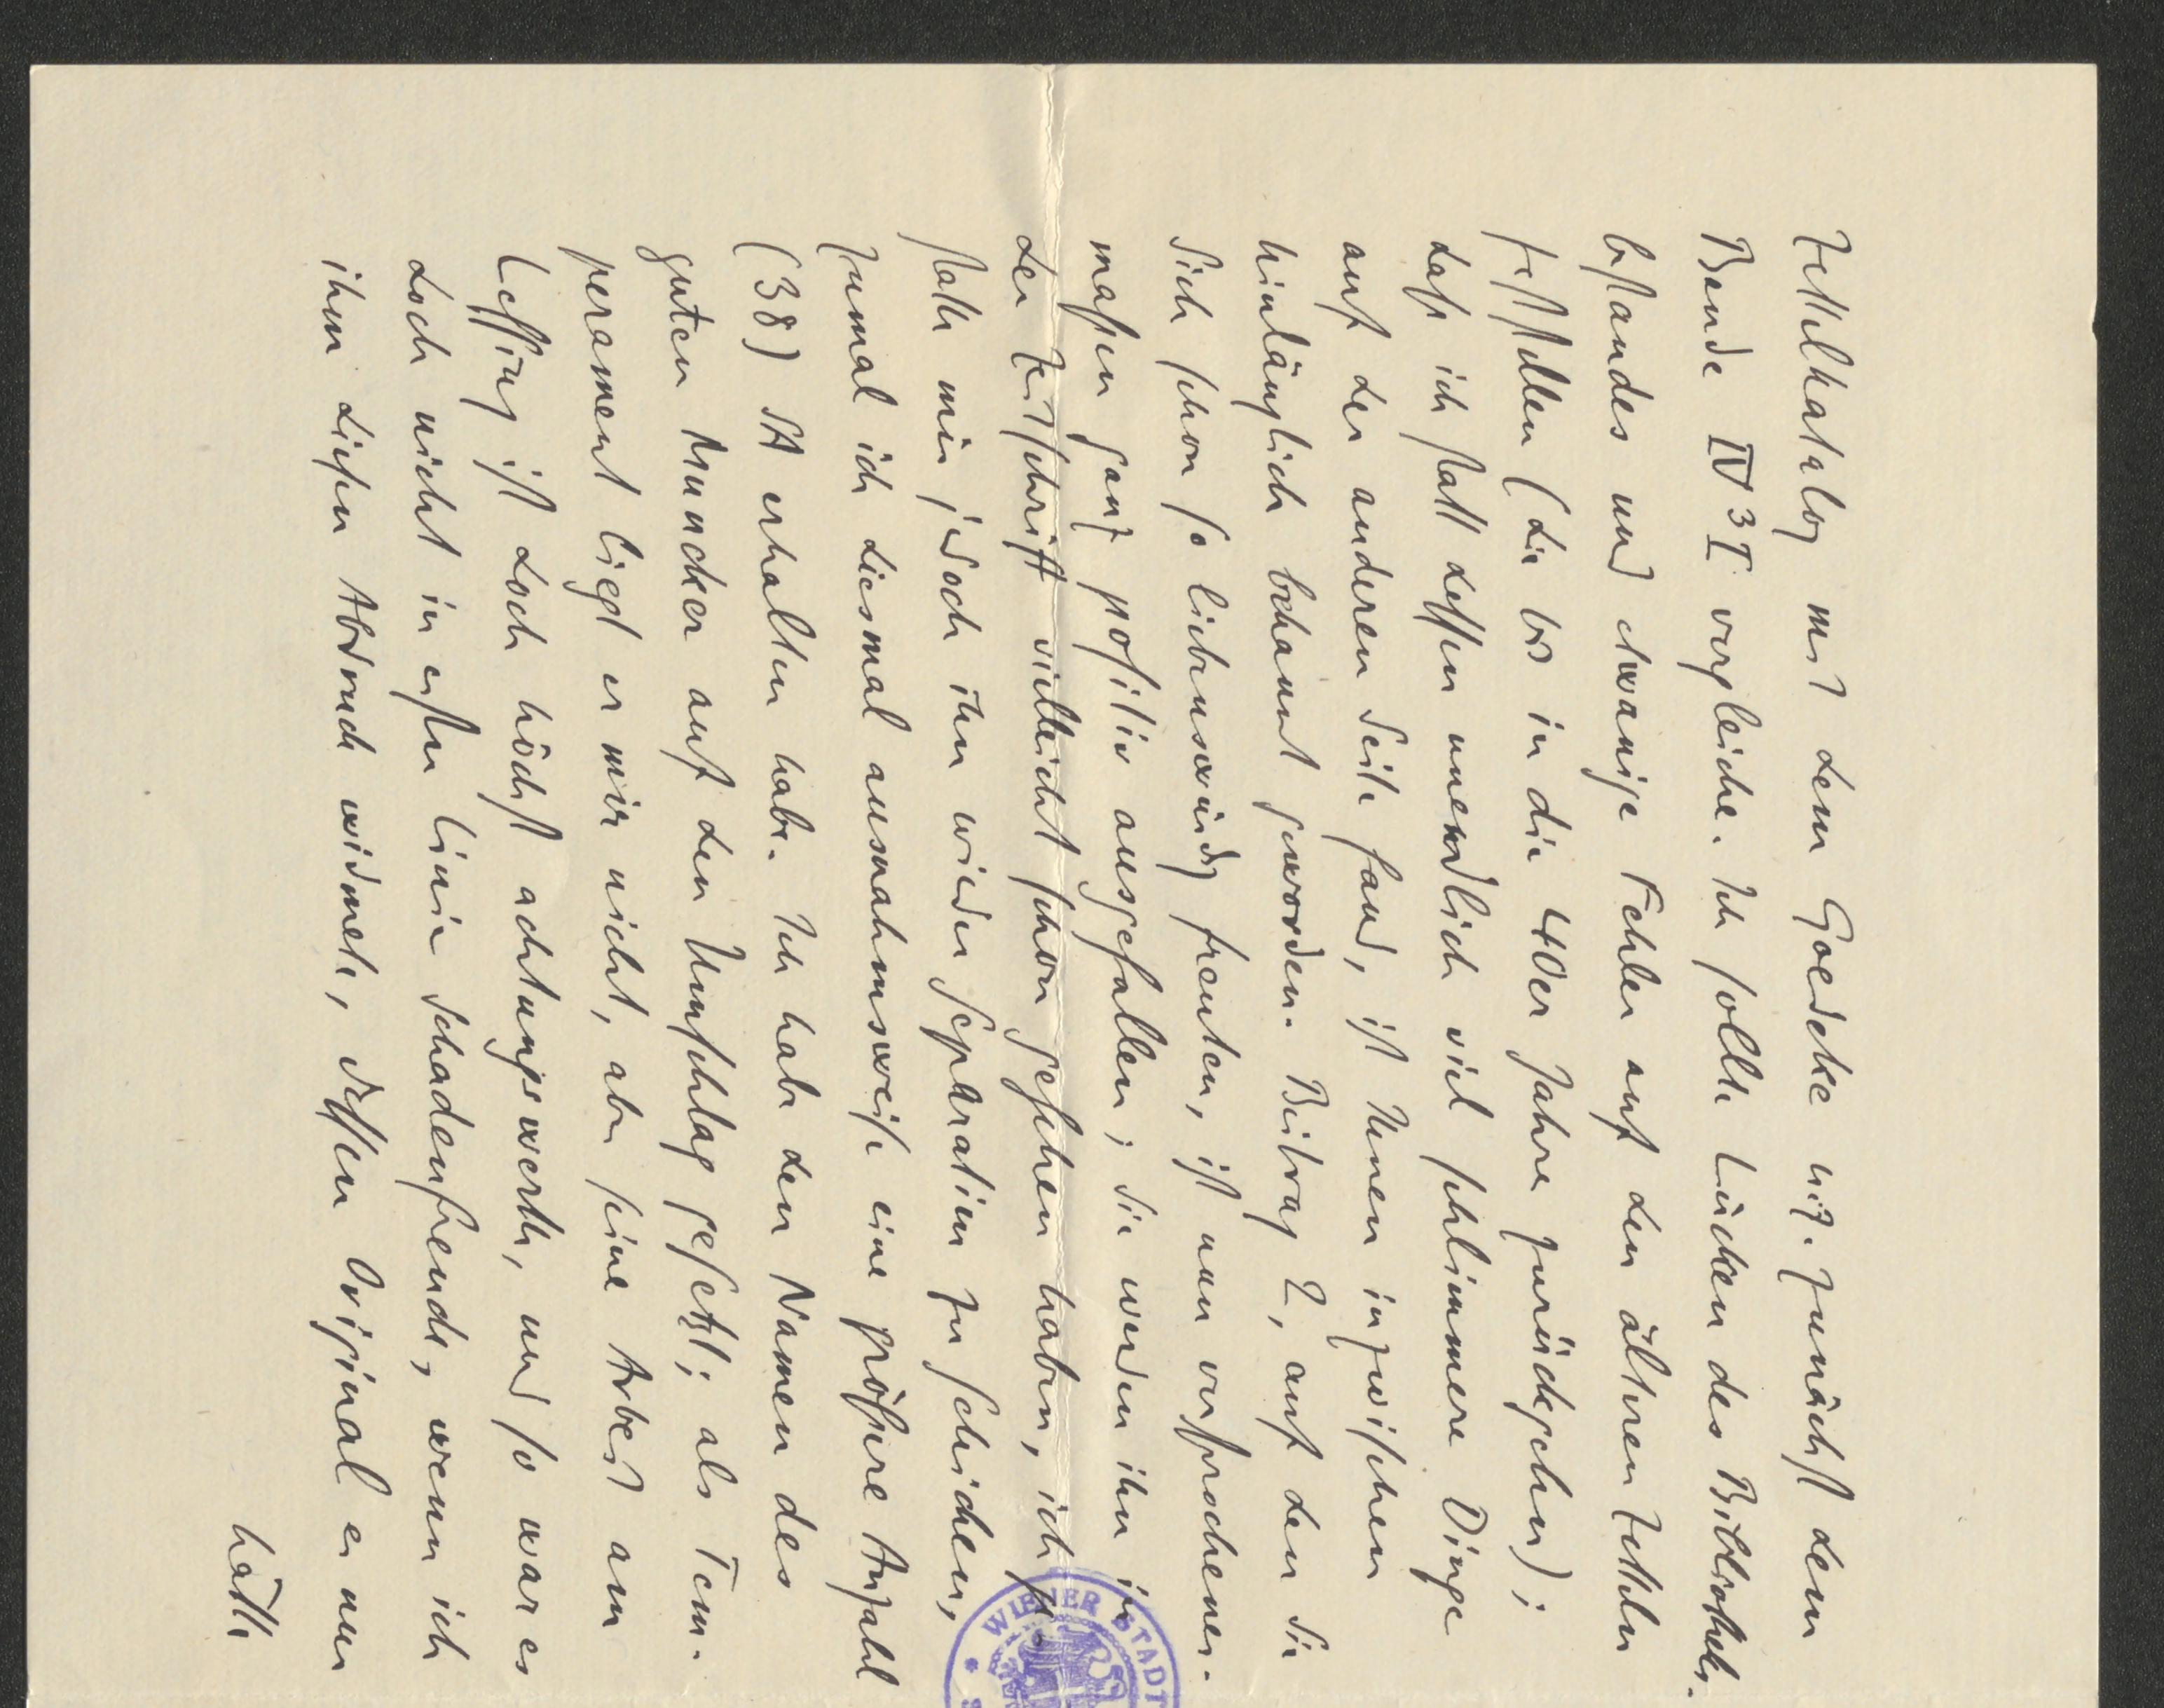 Zettelkatalog mit dem Goedeke u. z. zunächst dem
Bande IV 3 I vergleiche. Ich sollte Lücken des Bibliotheks-
bestandes und etwaige Fehler auf den älteren Zetteln
feststellen (die bis in die 40er Jahre zurückgehen);
daß ich statt dessen unendlich viel schlimmere Dinge
auf der anderen Seite fand, ist Ihnen inzwischen
hinlänglich bekannt geworden. Beitrag 2, auf den Sie
Sich schon so liebenswürdig freuten, ist nun versprochener-
maßen ganz positiv ausgefallen; Sie werden ihn in
der Zeitschrift vielleicht schon gesehen haben, ich
statte mir jedoch ihn wieder separatim zu schicken,
zumal ich diesmal ausnahmsweise eine größere Anzahl
(38) SA erhalten habe. Ich habe den Namen des
guten Muncker auf den Umschlag gesetzt; als Tem-
perament liegt er mir nicht, aber seine Arbeit am
Lessing ist doch höchst achtungswerth, und so war es
doch nicht in erster Linie Schadenfreude, wenn ich
ihm diesen Abdruck widmete, dessen Original er nur
hätte
WIENER STADT